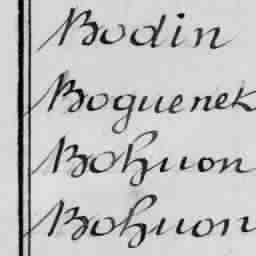 Bodin
Boguenet
Bohuon
Bohuon